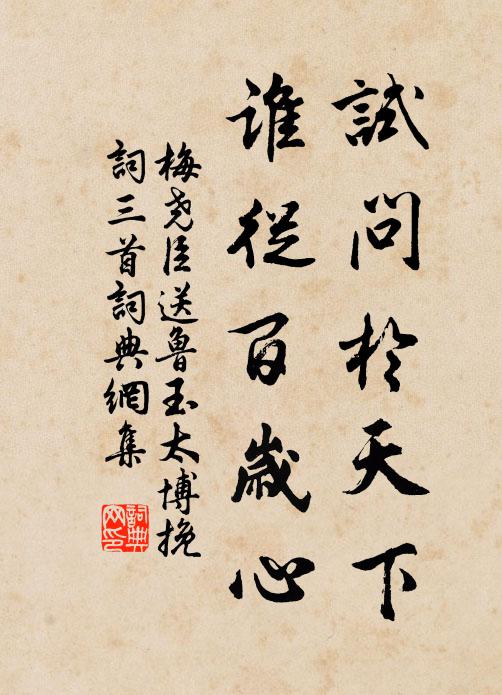 試問於天下
誰從百歲心
梅尧臣送魯玉太博挽
詞三首詞典網集
詞典网印